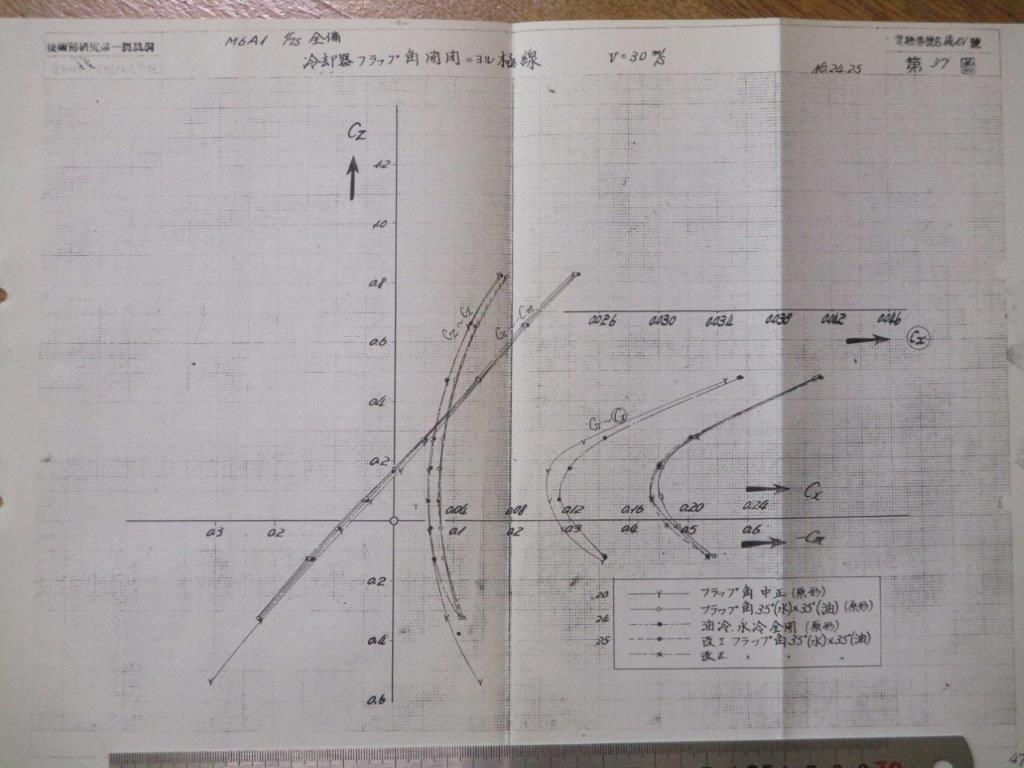 M6A1 1/25 全備
冷却器フラップ角開閉ニヨル極線
V=30 m/s
No.24.25
第 37 図
Cz
1.2
1.0
0.8
0.6
0.4
0.2
0.2
0.4
0.6
Cz~Cx
Cz~Cm
0.026 0.030 0.034 0.038 0.042 0.046
Cx
Cz~Cx
Cx
0.04 0.08 0.12 0.16 0.20 0.24
0.3 0.2 0.1 0.2 0.3 0.4 0.5 0.6
-Cm
20 フラップ角中正(原形)
フラップ角35°(水)×35°(油)(原形)
24 油冷.水冷全閉(原形)
25 改1 フラップ角35°(水)×35°(油)
47